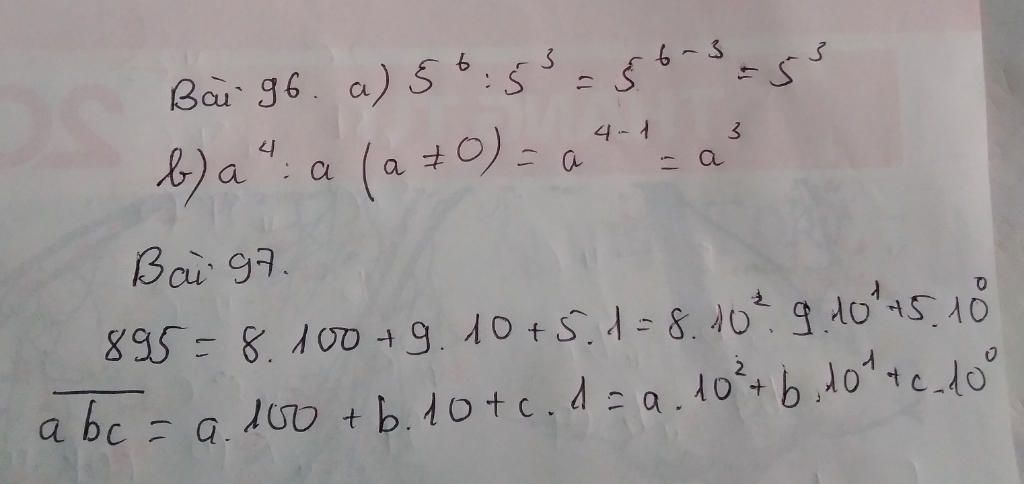 Bài 96. a) 5⁶ : 5³ = 5⁶⁻³ = 5³
b) a⁴ : a (a ≠ 0) = a⁴⁻¹ = a³
Bài 97.
895 = 8. 100 + 9. 10 + 5. 1 = 8. 10². 9. 10¹ + 5. 10⁰
a̅b̅c̅ = a. 100 + b. 10 + c. 1 = a. 10² + b. 10¹ + c. 10⁰